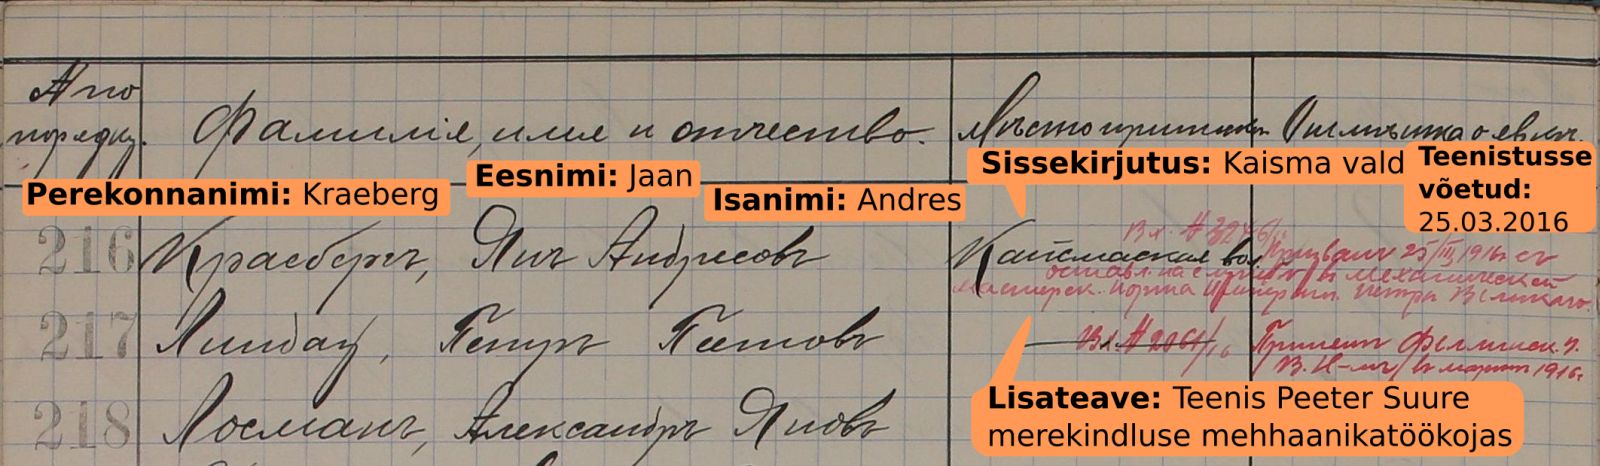 № по порядку.
Фамилія, имя и отчество.
Мѣсто приписки
Отмѣтка о явкѣ.
Perekonnanimi: Kraeberg
Eesnimi: Jaan
Isanimi: Andres
Sissekirjutus: Kaisma vald
Teenistusse
võetud:
25.03.2016
216 Краебергъ, Янъ Андресовъ
Кайсмаская вол.
Призванъ 25/III 1916 г. съ
оставл. на службѣ въ механической
мастерск. порта Императ. Петра Великаго.
217 Линдау, Петръ
Вх. № 2061/16
Принятъ Феллинск. у.
В. Н-мъ въ мартѣ 1916 г.
Lisateave: Teenis Peeter Suure
merekindluse mehhaanikatöökojas
218 Лосманъ, Александръ Яновъ